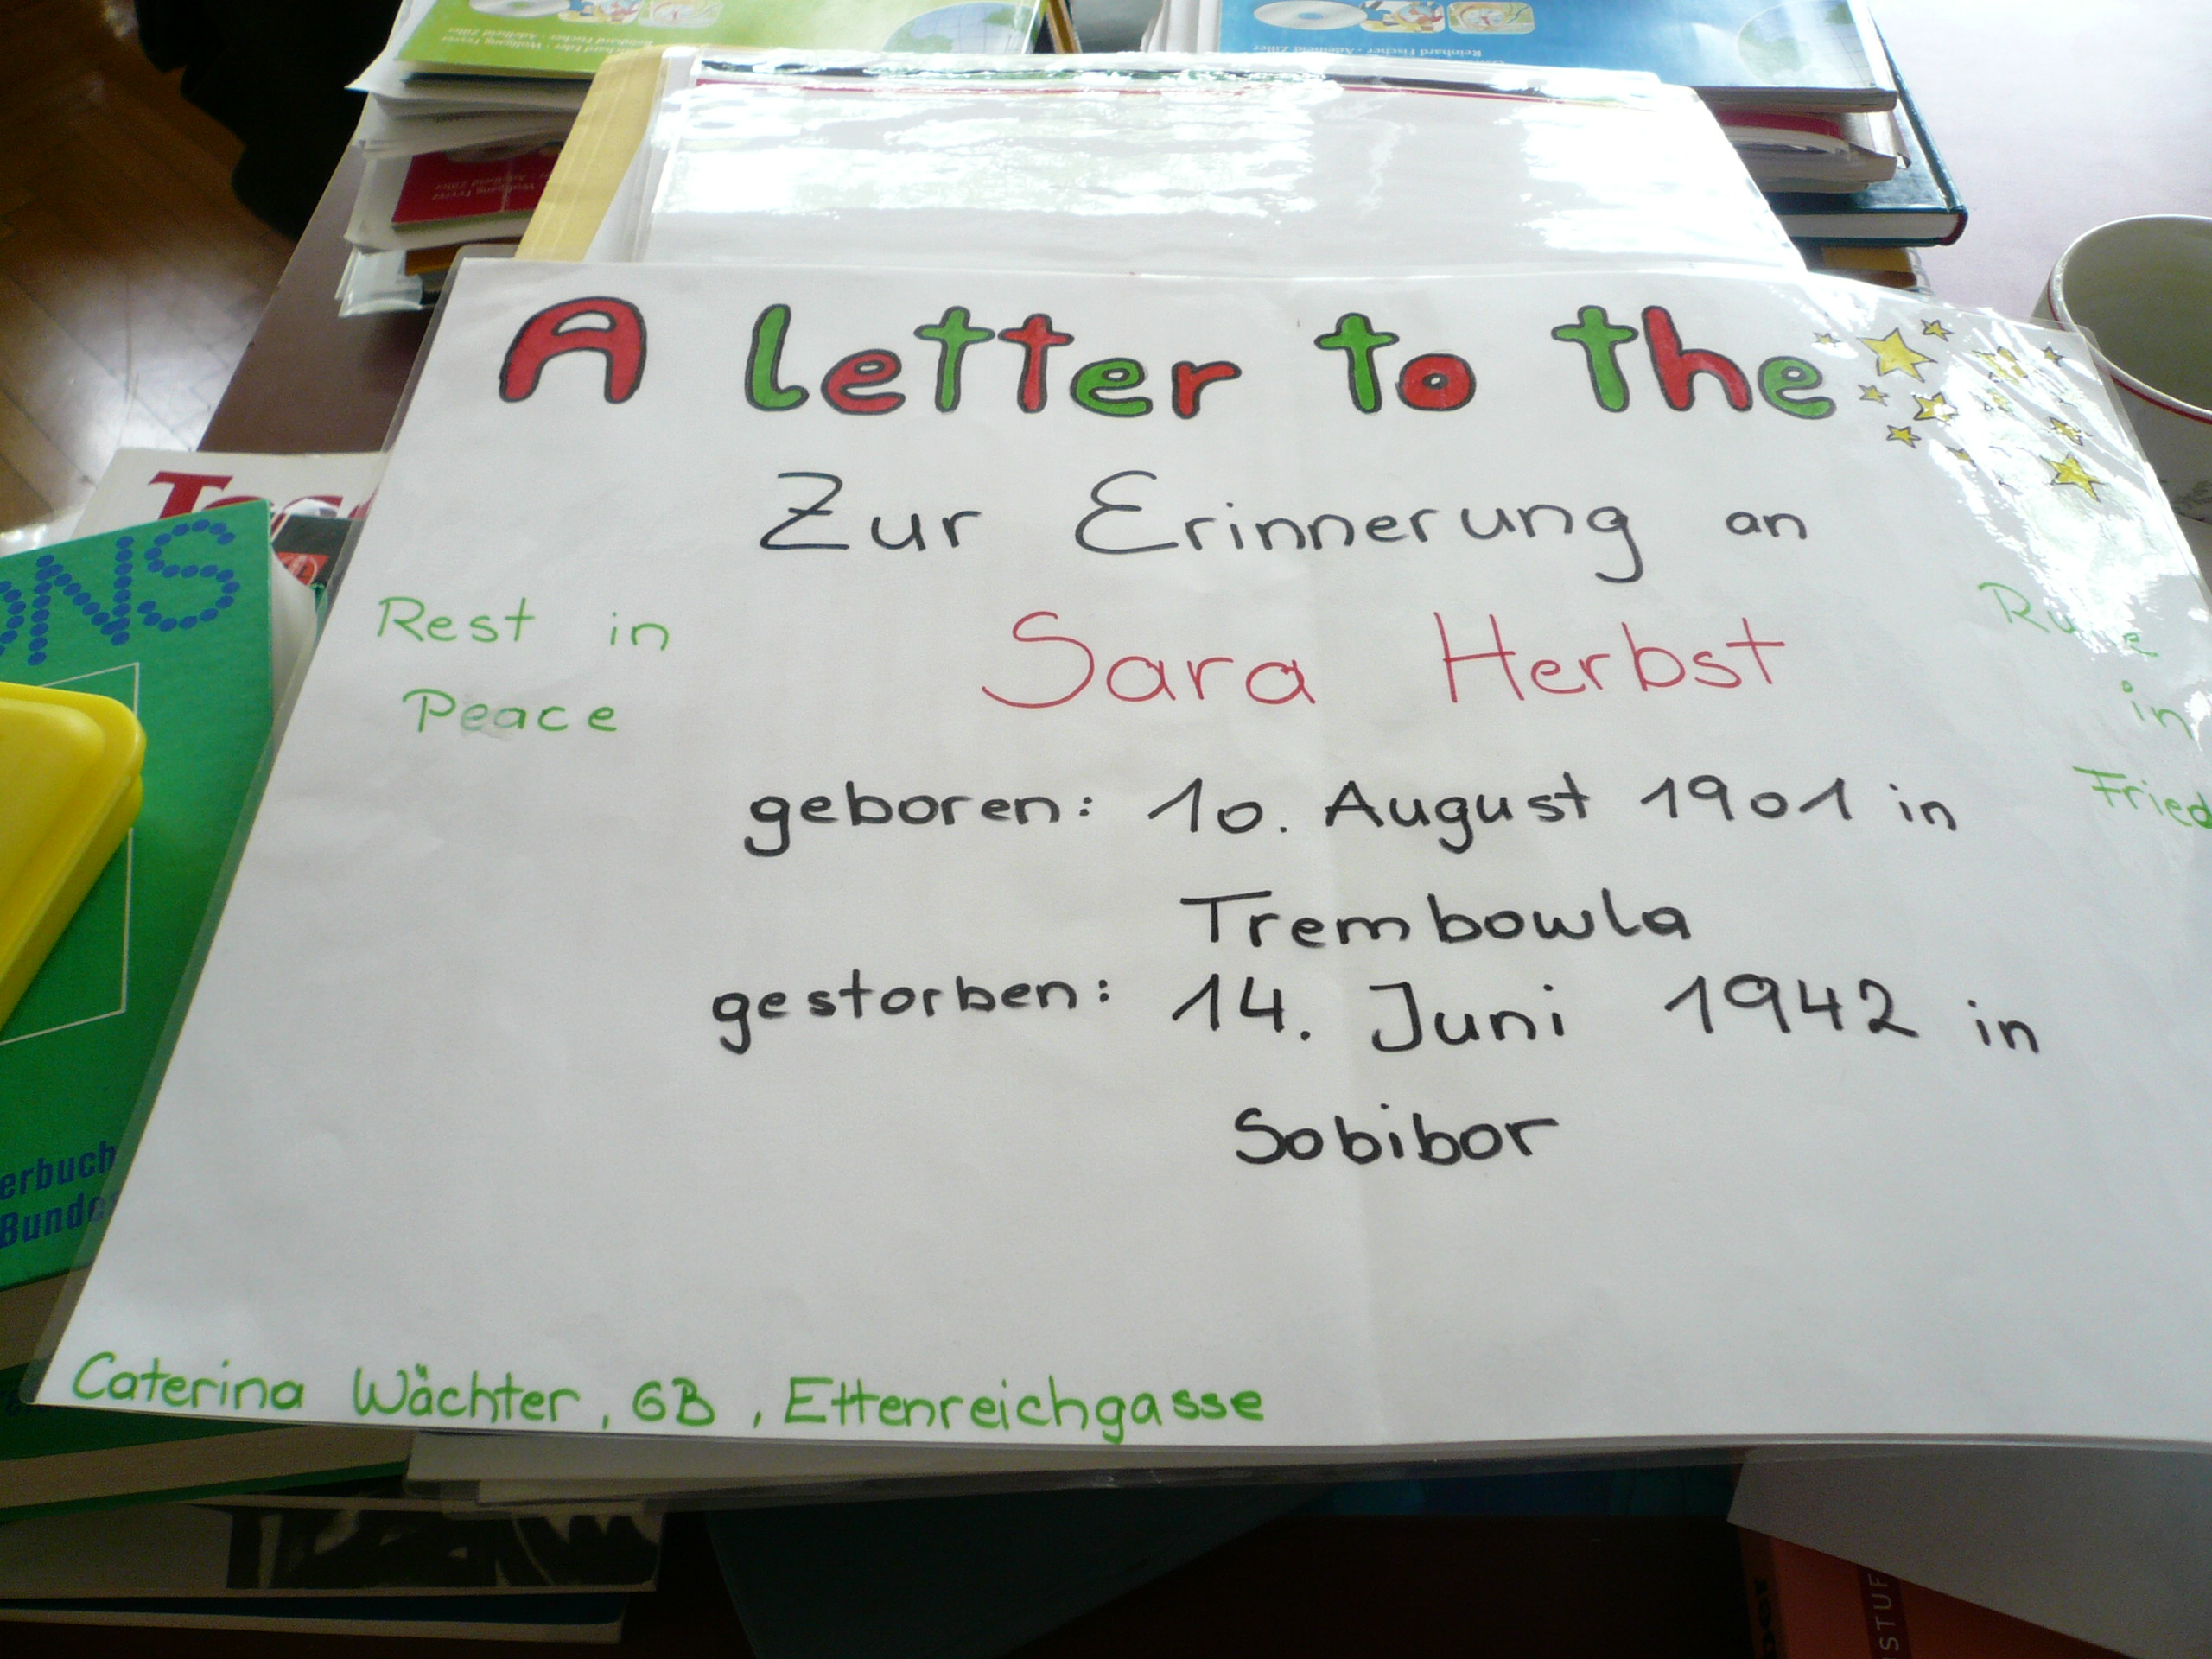 A letter to the
Zur Erinnerung an
Rest in
Peace
Sara Herbst
in
Fried
geboren: 10. August 1901 in
Trembowla
gestorben: 14. Juni 1942 in
Sobibor
Caterina Wächter, 6B, Ettenreichgasse
ONS
erbuch
Bunde
Reinhard Fischer · Adelheid Ziller
STUF